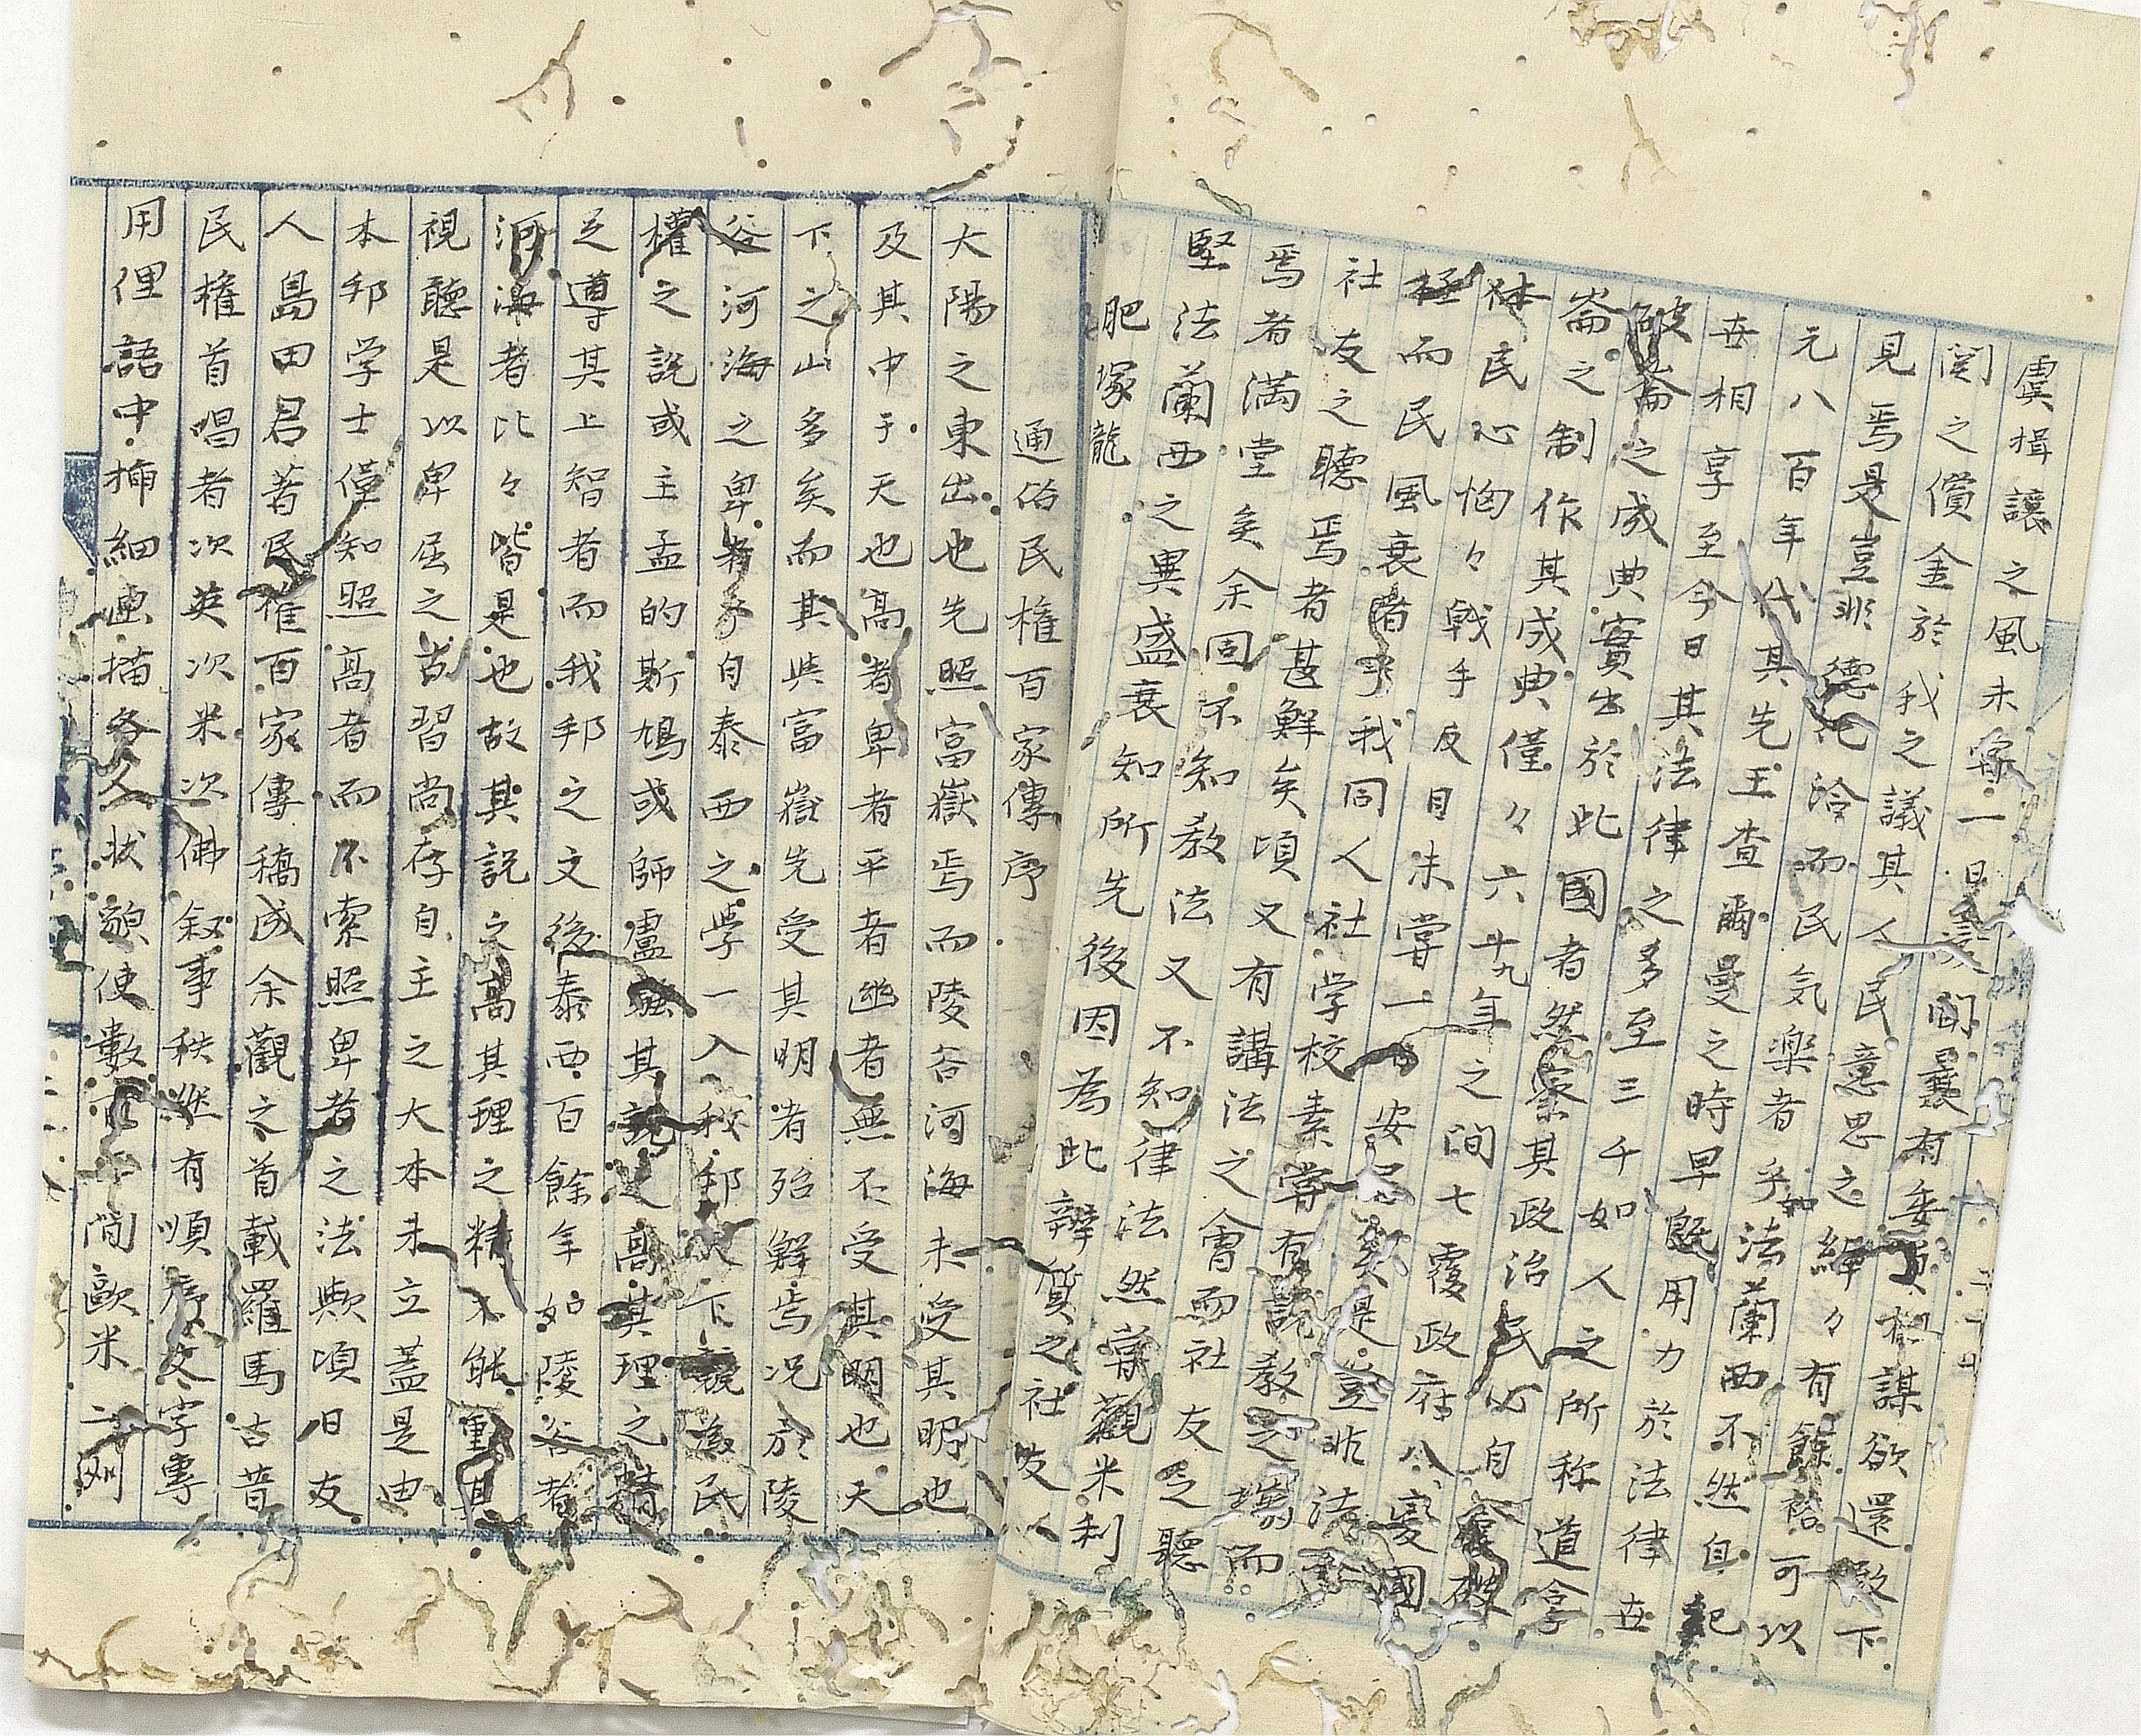 虞揖讓之風未 一日 間曩有委 相謀欲還 下
関之償金於我之議其人民意思之 々有餘裕可以
見焉是豈非德 洽而民気楽者乎如法蘭西不然自 紀
元八百年代其先王査爾曼之時早既用力於法律世
世相享至今日其法律之多至三千如人之所称道拿
破崙之成典實出於此國者然察其政治民心自 拿
崙之制作其成典僅々六十九年之间七覆政府八変國
体民心恟々戟手反目未嘗一日安 矣是豈非法
極而民風衰者乎我同人社学校素嘗有説教之場而
社友之聽焉者甚鮮矣頃又有講法之會而社友之聽
焉者満堂矣余固不知教法又不知律法然嘗觀米利
堅法蘭西之異盛衰知所先後因為此辨質之社友以
肥塚龍
通俗民権百家傳序
大陽之東出也先照富嶽焉而陵谷河海未受其明也
及其中于天也高者卑者平者幽者無不受其明也天
下之山多矣而其 富嶽先受其明者殆鮮焉况於陵
谷河海之卑者乎自泰西之学一入我邦 下競為民
權之説或主孟的斯鳩或師盧騒其説之高其理之精
足導其上智者而我邦之文後泰西百餘年如陵谷者
河海者比々皆是也故其説之高其理之精不能重其
視聽是以卑屈之古習尚存自主之大本未立蓋是由
本邦学士僅知照高者而不索照卑者之法歟頃日友
人島田君著民権百家傳稿成余觀之首載羅馬古昔
民権首唱者次英次米次佛叙事秩継有順序文字專
用俚語中挿細画描各人状貌使數百 间歐米二洲